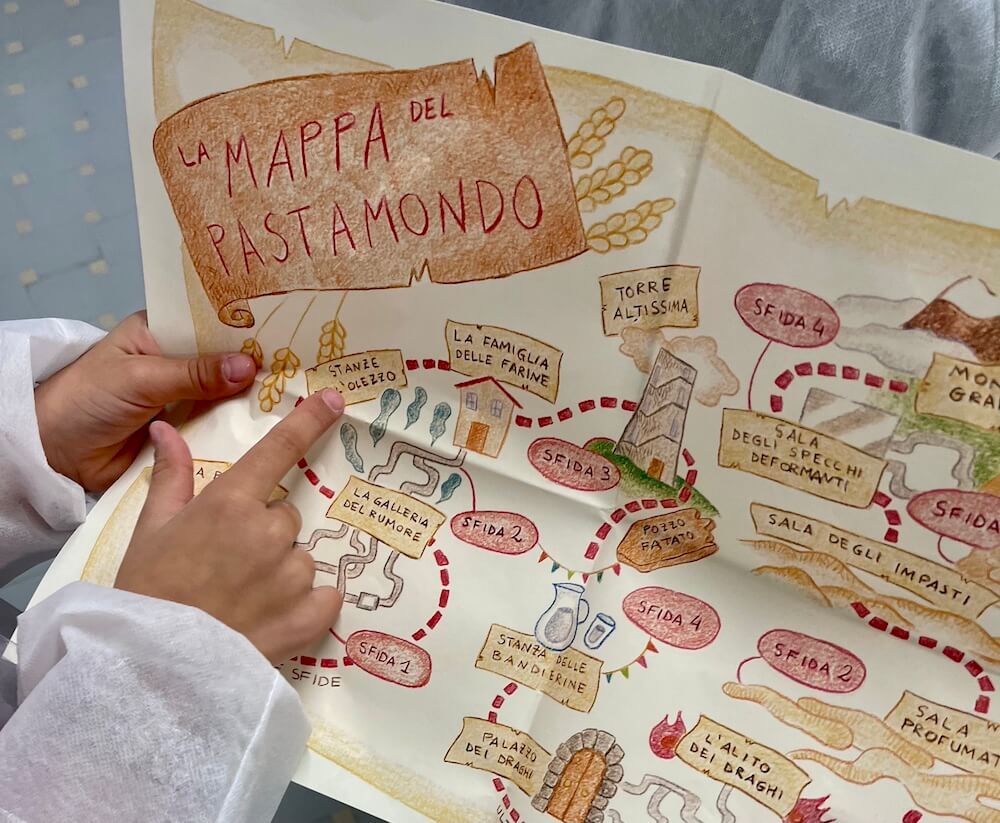 LA MAPPA DEL
PASTAMONDO
TORRE
ALTISSIMA
SFIDA 4
LA FAMIGLIA
DELLE FARINE
STANZE
SALA
DEGLI SPECCHI
DEFORMANTI
SFIDA 3
LA GALLERIA
DEL RUMORE
SFIDA 2
POZZO
FATATO
SFIDA
SALA DEGLI IMPASTI
SFIDA 4
SFIDA 1
SFIDE
STANZA DELLE
BANDIERINE
SFIDA 2
SALA
PROFUMAT
PALAZZO
DEI DRAGHI
L'ALITO
DEI DRAGHI